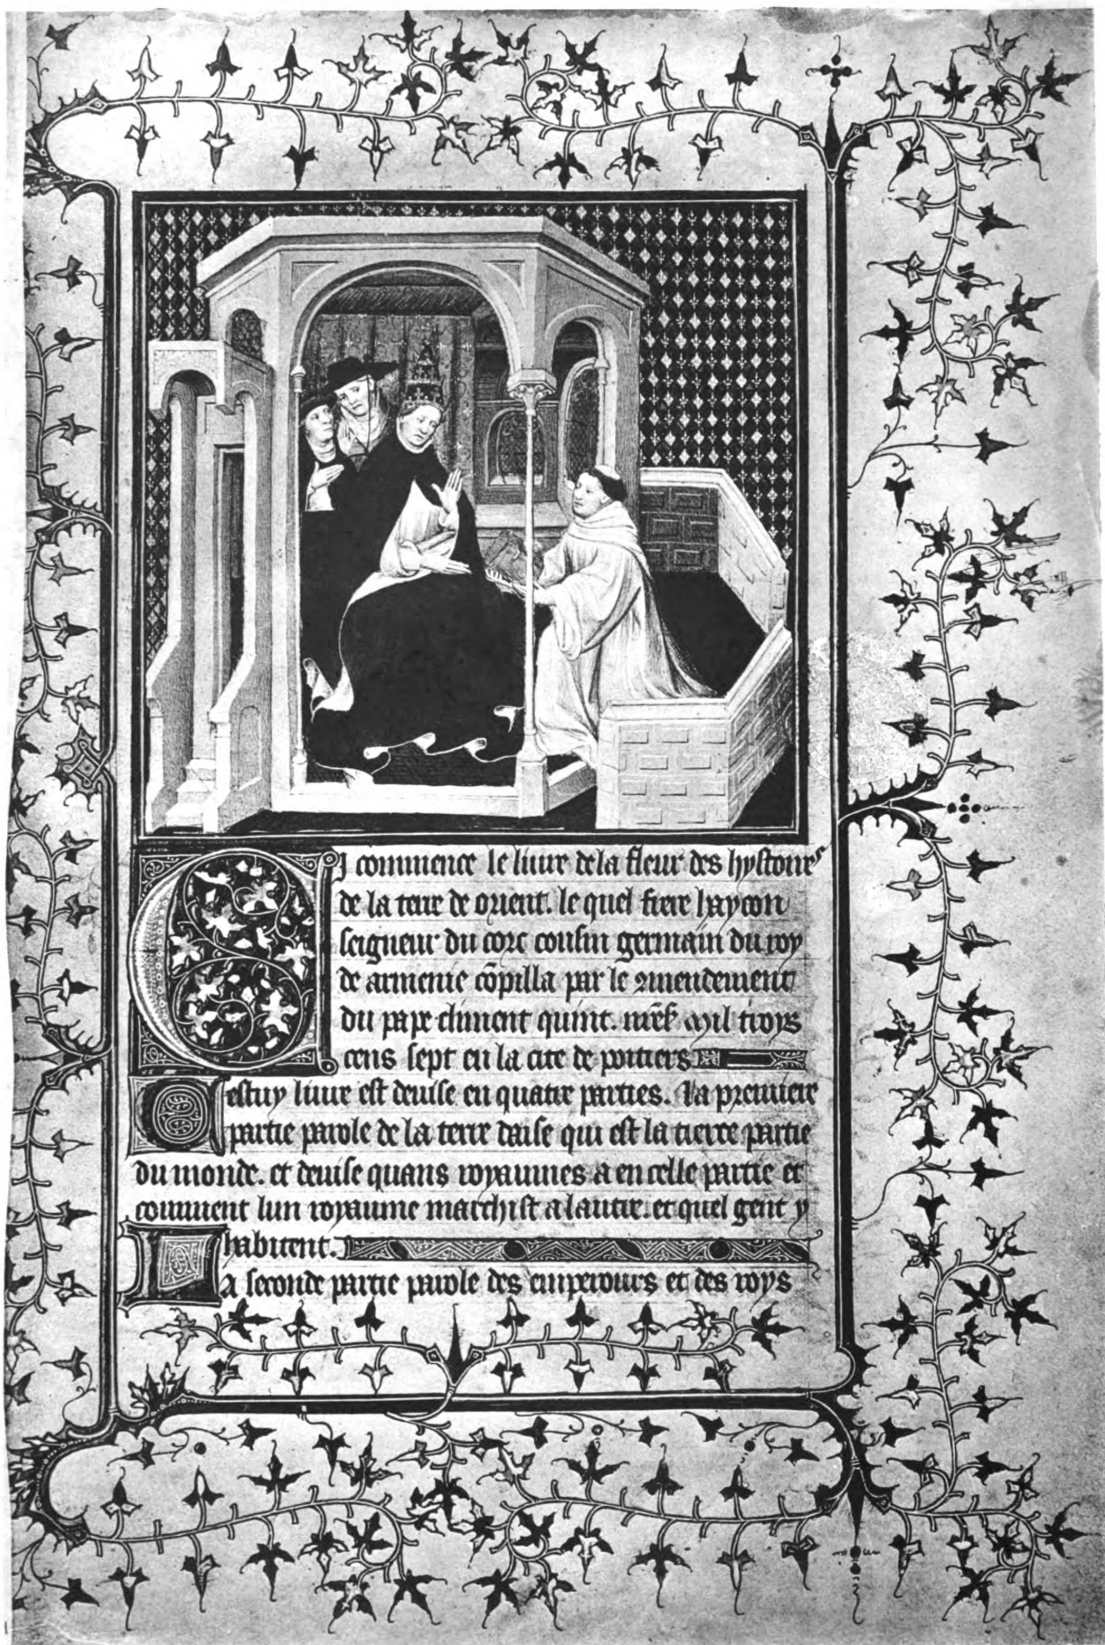 Cj commence le liure dela fleur des hystoires
de la terre de orient. le quel frere haycon
seigneur du corc cousin germain du roy
de armenie cōpilla par le 9mendement
du pape climent quint. mil troys
cens sept en la cite de poitiers
Cestuy liure est deuise en quatre parties. La premiere
partie parole de la terre daise qui est la tierce partie
du monde. et deuise quans royaumes a en celle partie et
comment lun royaume marchist a lautre. et quel gent y
habitent.
La seconde partie parole des emperours et des roys